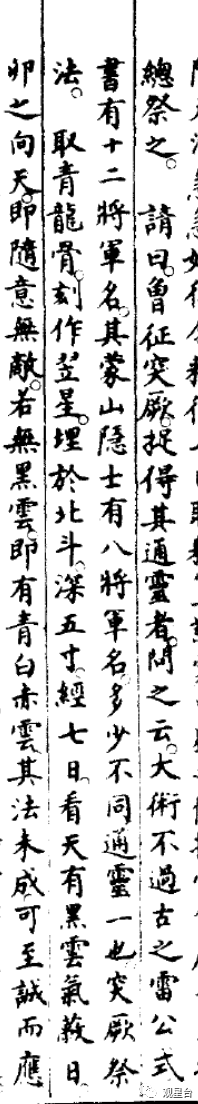 總祭之。請曰。曾征突厥。捉得其通靈者。問之云。大術不過古之雷公式
書有十二將軍名。其蒙山隱士有八將軍名。多少不同通靈一也突厥祭
法。取青龍骨。刻作翌星。埋於北斗。深五寸。經七日。看天有黑雲氣蔽日。
卯之向天。即隨意無敵。若無黑雲。即有青白赤雲其法未成可至誠而應
观星台